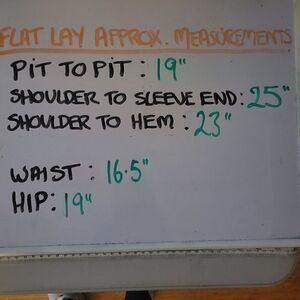 FLAT LAY APPROX. MEASUREMENTS
PIT TO PIT : 19"
SHOULDER TO SLEEVE END: 25"
SHOULDER TO HEM : 23"
WAIST : 16.5"
HIP: 19"